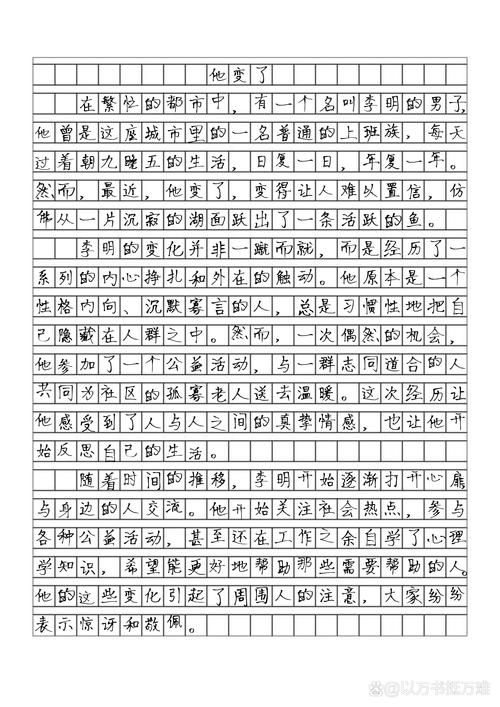 他变了
在繁忙的都市中，有一个名叫李明的男子，
他曾是这座城市里的一名普通的上班族，每天
过着朝九晚五的生活，日复一日，年复一年。
然而，最近，他变了，变得让人难以置信，仿
佛从一片沉寂的湖面跃出了一条活跃的鱼。
李明的变化并非一蹴而就，而是经历了一
系列的内心挣扎和外在的触动。他原本是一个
性格内向、沉默寡言的人，总是习惯性地把自
己隐藏在人群之中。然而，一次偶然的机会，
他参加了一个公益活动，与一群志同道合的人
共同为社区的孤寡老人送去温暖。这次经历让
他感受到了人与人之间的真挚情感，也让他开
始反思自己的生活。
随着时间的推移，李明开始逐渐打开心扉，
与身边的人交流。他开始关注社会热点，参与
各种公益活动，甚至还在工作之余自学了心理
学知识，希望能更好地帮助那些需要帮助的人。
他的这些变化引起了周围人的注意，大家纷纷
表示惊讶和敬佩。
@以万书抵万难